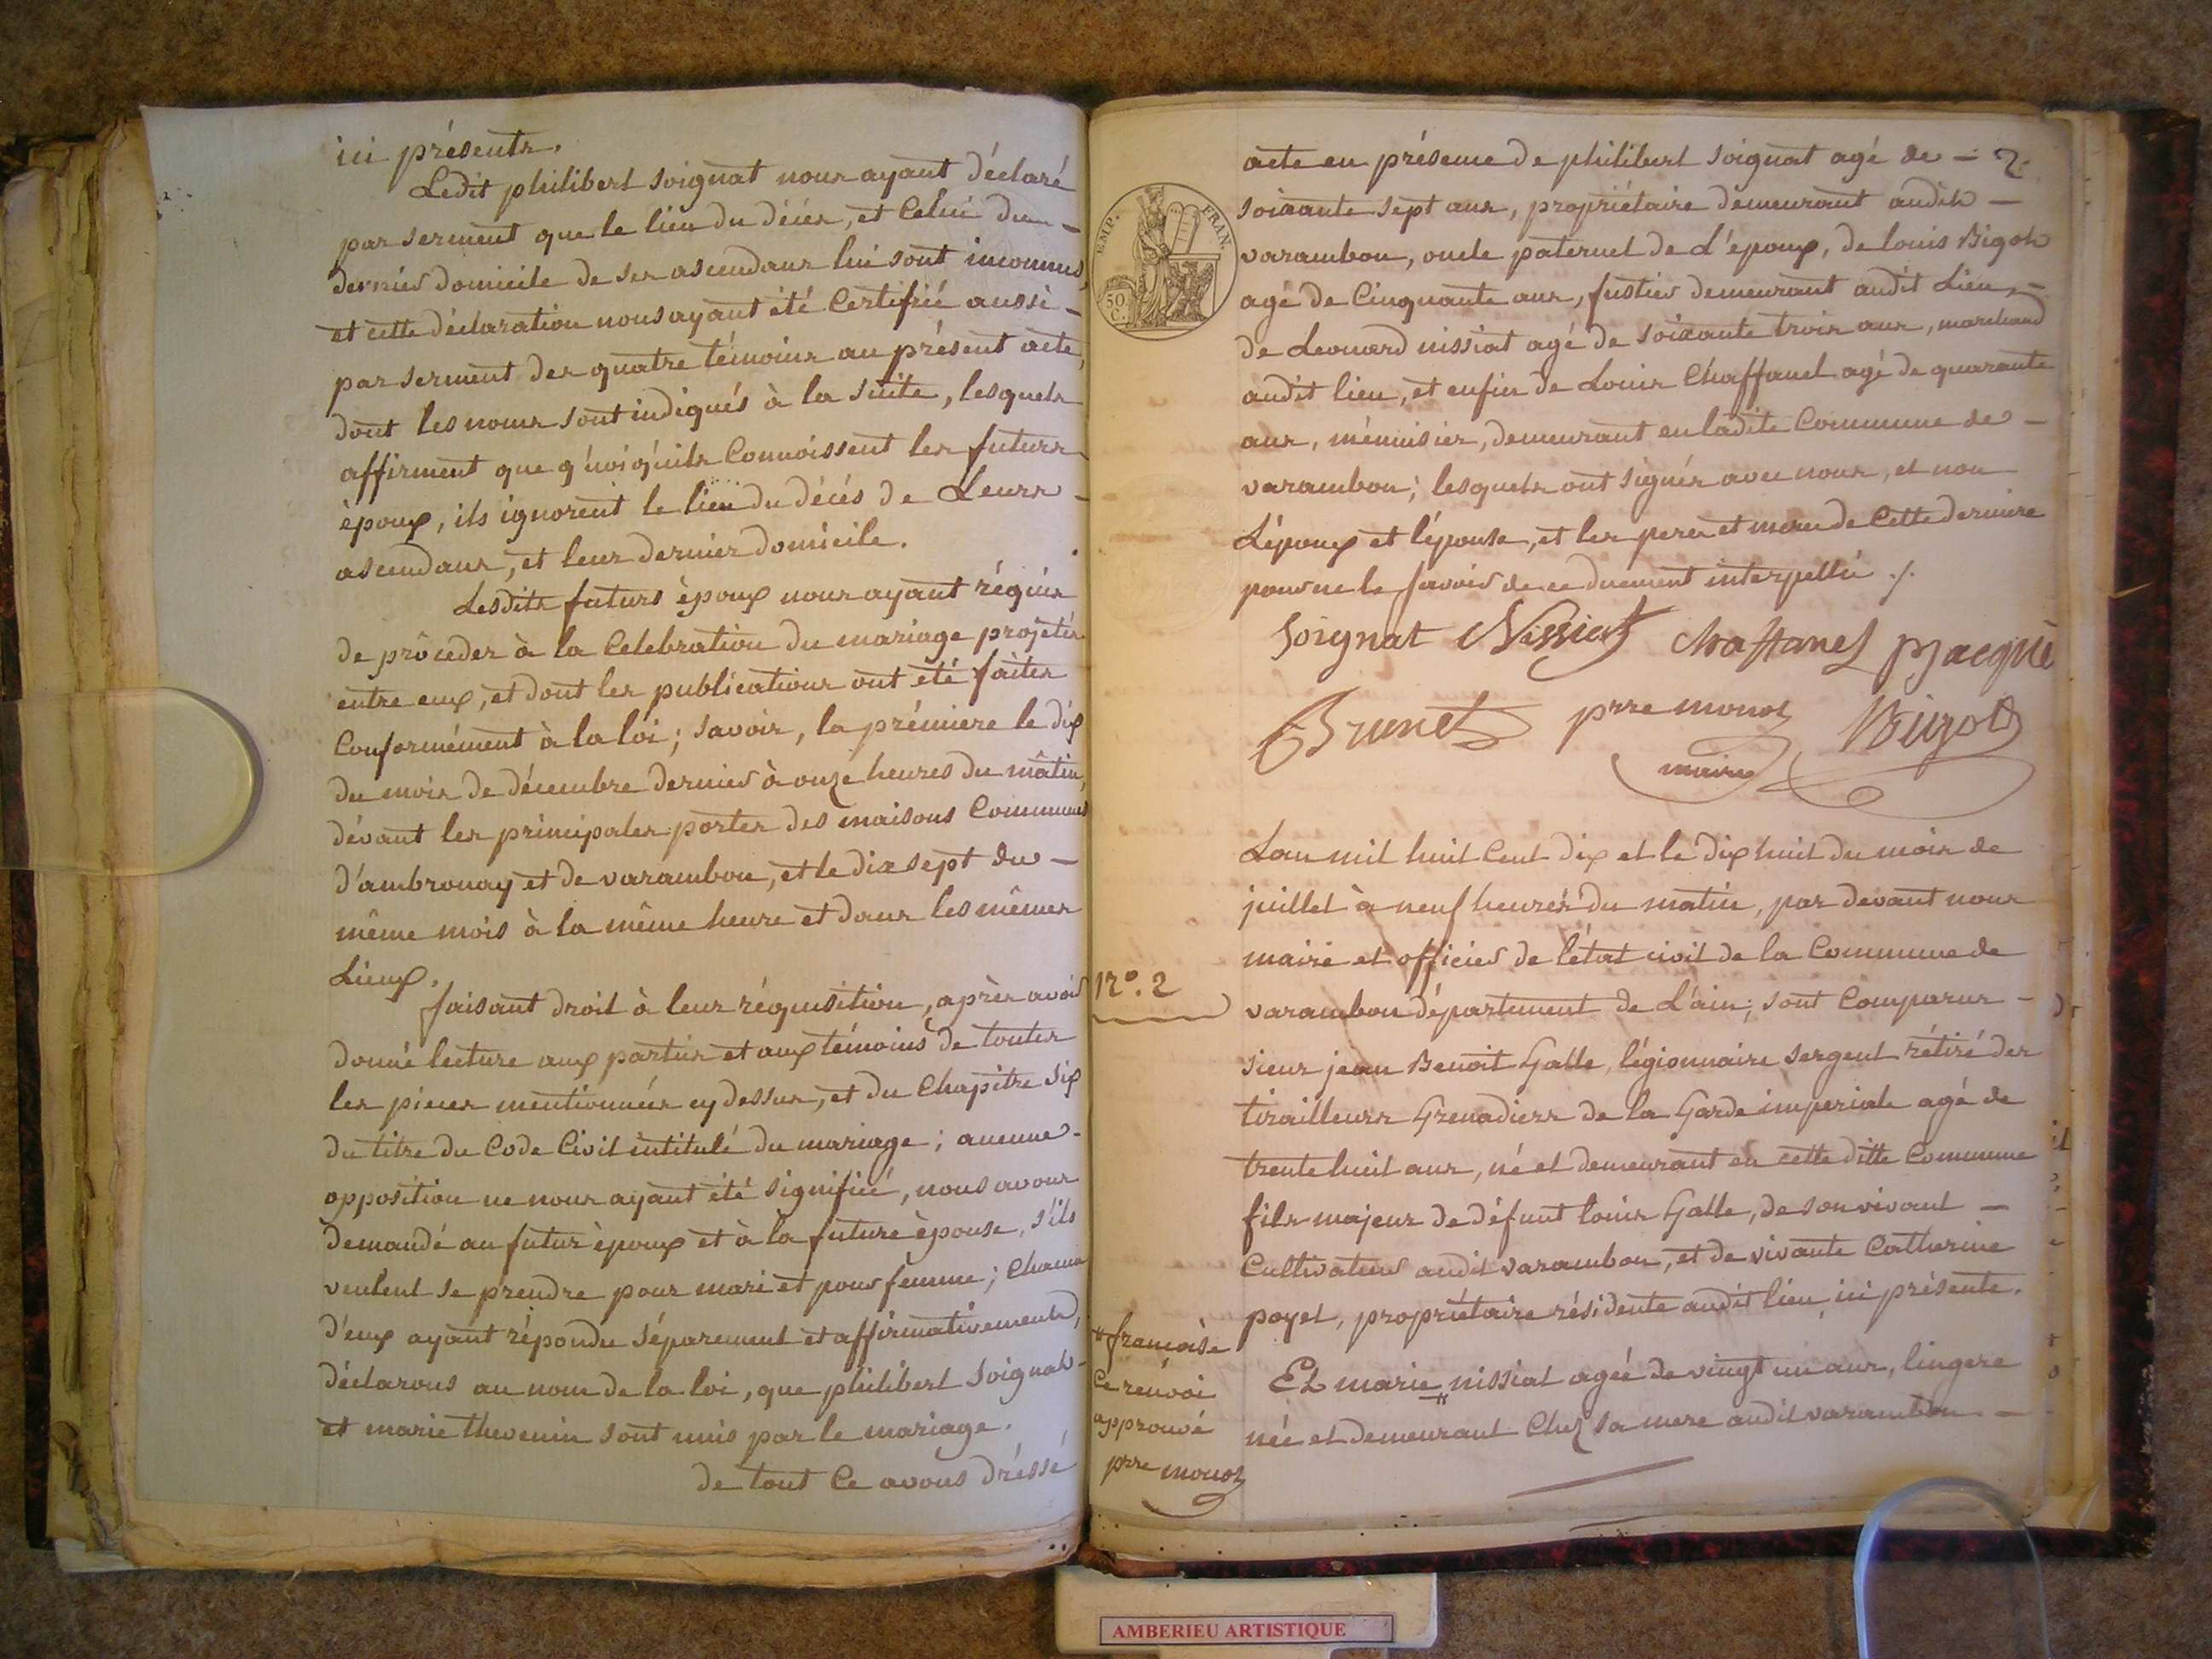 ici présents.
Ledit philibert Soignat nous ayant déclaré
par serment que le lieu du décès, et Celui du -
dernier domicile de ses ascendans lui sont inconnus,
et cette déclaration nous ayant été Certifiée aussi -
par serment des quatre témoins au présent acte,
dont les noms sont indiqués à la suite, lesquels
affirment que q'uoiqu'ils Connoissent les futurs
époux, ils ignorent le lieu du décés de Leurs -
ascendans, et leur dernier domicile.
Lesdits futurs époux nous ayant réquis
de procéder à la Celebration du mariage projetés
entre eux, et dont les publications ont été faites
Conformément à la loi; savoir, la prémiere le dix
du mois de décembre dernier à onze heures du mâtin,
dévant les principales portes des maisons Communes
d'ambronay et de varambon, et le dix sept du -
même mois à la même heure et dans les mêmes
Lieux.
faisant droit à leur réquisition, après avoir
donné lecture aux parties et aux témoins de toutes
les pieces mentionnées cy dessus, et du Chapitre Six
du titre du Code Civil intitulé du mariage; aucune -
opposition ne nous ayant été signifiée, nous avons
demandé au futur époux et à la future épouse, s'ils
veulent se prendre pour mari et pour femme; Chacun
d'eux ayant répondu séparement et affirmativement,
déclarons au nom de la loi, que philibert Soignat -
et marie thevenin sont unis par le mariage.
de tout Ce avons dréssé
acte en présence de philibert Soignat agé de - 2.
soixante sept ans, propriétaire demeurant audit -
varambon, oncle paternel de L'époux, de louis Bigot
agé de Cinquante ans, fustier demeurant audit Lieu, -
de Leonard nissiat agé de soixante trois ans, marchand
audit lieu, et enfin de Louis Chaffanel agé de quarante
ans, ménuisier, demeurant en ladite Commune de -
varambon; lesquels ont signés avec nous, et non
L'époux et l'épouse, et les peres et mere de Cette derniere
pour ne le savoir de ce duement interpellés ./.
EMP. FRAN.
50 C.
Soignat Nissiat Chaffanel Macquè
Brunet prre monod Bigot
maire
Lan mil huit Cent dix et le dix huit du mois de
juillet à neuf heures du matin, par devant nous
maire et officier de l'état civil de la Commune de
N°. 2
varambon département de L'ain; sont Comparus -
sieur jean Benoit Galle, légionnaire sergent rétiré des
tirailleurs Grenadiers de la Garde imperiale agé de
trente huit ans, né et demeurant en cette ditte Commune
fils majeur de défunt louis Galle, de son vivant -
Cultivateur audit varambon, et de vivante Catherine
poyet, propriétaire résidente audit lieu ici présente.
Et marie # nissiat agée de vingt un ans, lingere
née et demeurant Chez sa mere audit varambon -
# francoise
Ce renvoi
approuvé
prre monod
AMBERIEU ARTISTIQUE